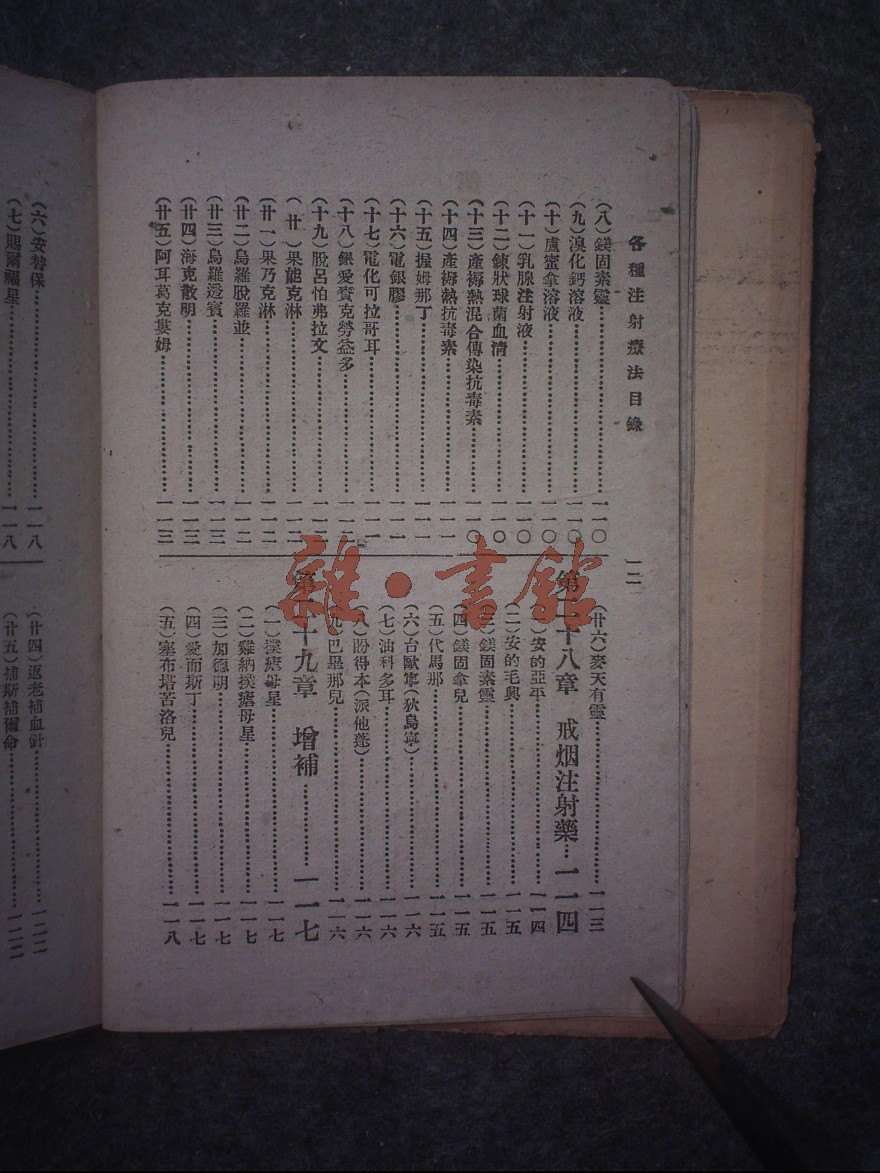 各種注射療法目錄
一二
(八)鎂固素靈……一一〇
(九)溴化鈣溶液……一一〇
(十)盧蜜拿溶液……一一〇
(十一)乳腺注射液……一一〇
(十二)鍊狀球菌血清……一一〇
(十三)產褥熱混合傳染抗毒素……一一〇
(十四)產褥熱抗毒素……一一一
(十五)握姆那丁……一一一
(十六)電銀膠……一一一
(十七)電化可拉哥耳……一一一
(十八)銀愛賚克勞益多……一一二
(十九)脫呂怕弗拉文……一一二
(廿)果能克淋……一一二
(廿一)果乃克淋……一一二
(廿二)烏羅脫羅並……一一二
(廿三)烏羅透賓……一一三
(廿四)海克散明……一一三
(廿五)阿耳葛克婁姆……一一三
(廿六)麥天有靈……一一三
第二十八章 戒烟注射藥…一一四
(一)安的亞平……一一四
(二)安的毛與……一一五
(三)鎂固素靈……一一五
(四)鎂固拿兒……一一五
(五)代馬那……一一五
(六)台歐寧(狄烏寧)……一一六
(七)油科多耳……一一六
(八)盼得本(派他蓬)……一一六
(九)巴壘那兒……一一六
第二十九章 增補……一一七
(一)撲瘧母星……一一七
(二)雞納撲瘧母星……一一七
(三)加德明……一一七
(四)愛而斯丁……一一七
(五)塞布塔苦洛兒……一一八
(六)安替保……一一八
(七)賜爾福星……一一八
(廿四)返老補血針……一二二
(廿五)補斯補爾命……一二二
雜·書館